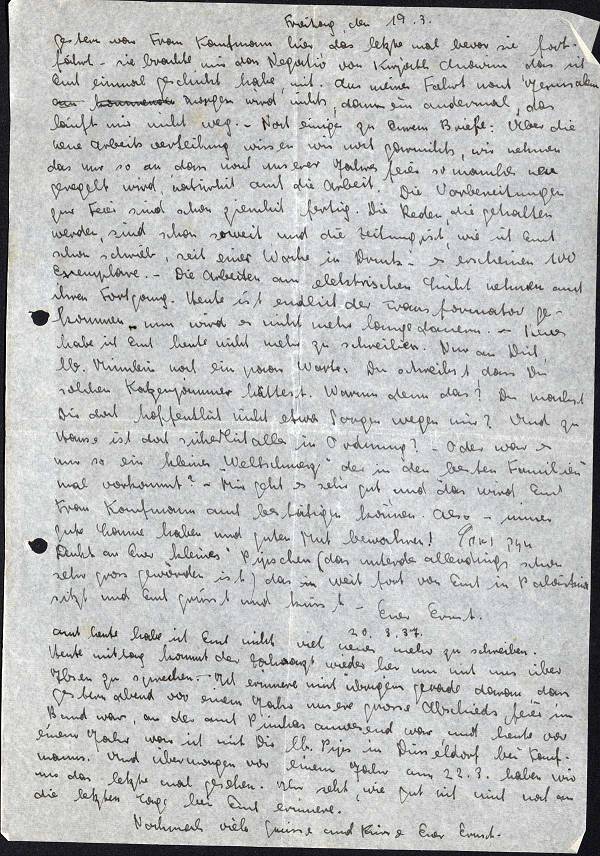 Freitag, den 19.3.
gestern war Frau Kaufmann hier das letzte mal bevor sie fort-
fährt - sie brachte mir das Negativ von Kirjath Anavim das ich
Euch einmal geschickt habe, mit. Aus meiner Fahrt nach Jerusalem
morgen wird nichts, dann ein andermal, das
läuft mir nicht weg. - Noch einiges zu Eurem Briefe: Über die
neue Arbeitsverteilung wissen wir noch garnichts, wir nehmen
das nur so an dass nach unserer Jahresfeier so mancher neu
geregelt wird, natürlich auch die Arbeit. Die Vorbereitungen
zur Feier sind schon ziemlich fertig. Die Reden, die gehalten
werden, sind schon soweit und die Zeitung ist, wie ich Euch
schon schrieb, seit einer Woche in Druck - es erscheinen 100
Exemplare. - Die Arbeiten am elektrischen Licht nehmen auch
ihren Fortgang. Heute ist endlich der Transformator ge-
kommen, nun wird es nicht mehr lange dauern. - Neues
habe ich Euch heute nicht mehr zu schreiben. Nur an Dich,
lb. noch ein paar Worte. Du schreibst dass Du
solchen Katzenjammer hättest. Warum denn das? Du machst
Dir doch hoffentlich nicht etwa Sorgen wegen mir? Und zu
Hause ist doch sicherlich alles in Ordnung? - Oder war es
nur so ein kleiner "Weltschmerz" der in den besten Familien
mal vorkommt? - Mir geht es sehr gut und das wird Euch
Frau Kaufmann auch bestätigen können. Also - immer
gute Laune haben und guten Mut bewahren! חזק ואמץ
Denkt an Euer kleines Pijschen (das unterdes allerdings schon
sehr gross geworden ist) das so weit fort von Euch in Palästina
sitzt und Euch grüsst und küsst - Euer Ernst.
20.3.37.
auch heute habe ich Euch nicht viel neues mehr zu schreiben.
Heute mittag kommt der wieder her um mit uns über
Ibsen zu sprechen. - Ich erinnere mich übrigens gerade daran dass
gestern abend vor einem Jahr unsere grosse Abschiedsfeier im
Bund war, an der auch Pinchas anwesend war und heute vor
einem Jahr war ich mit Dir lb. Pijes in Düsseldorf bei Kauf-
manns. Und übermorgen vor einem Jahr am 22.3. haben wir
uns das letzte mal gesehen. Ihr seht, wie gut ich mich noch an
die letzten Tage bei Euch erinnere.
Nochmals viele Grüsse und Küsse Euer Ernst.